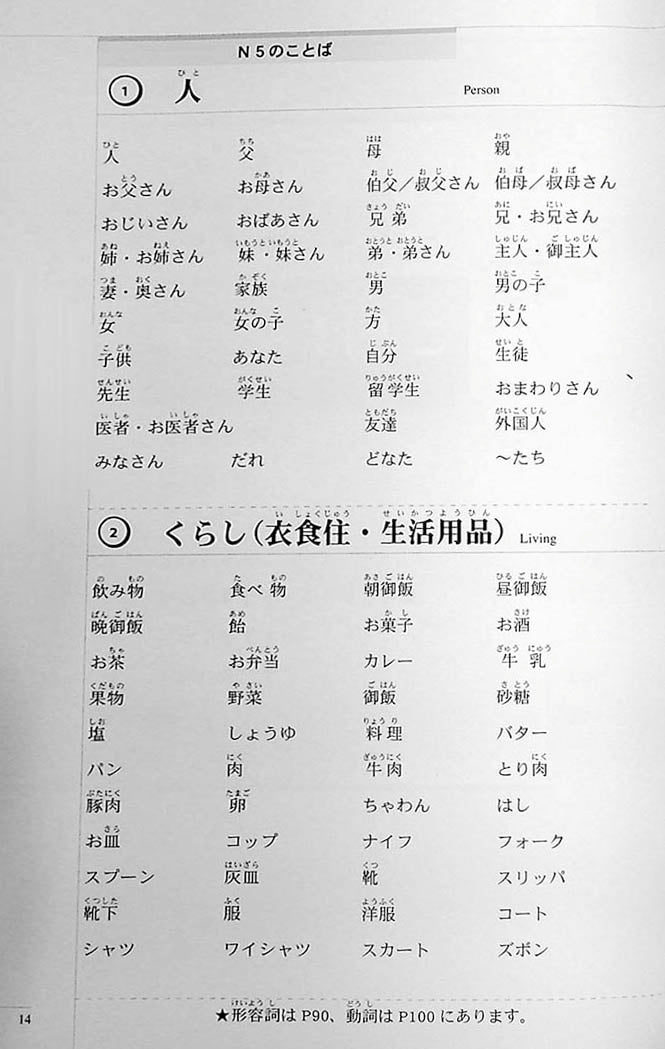 N5のことば
① 人 Person
人 父 母 親
お父さん お母さん 伯父／叔父さん 伯母／叔母さん
おじいさん おばあさん 兄弟 兄・お兄さん
姉・お姉さん 妹・妹さん 弟・弟さん 主人・御主人
妻・奥さん 家族 男 男の子
女 女の子 方 大人
子供 あなた 自分 生徒
先生 学生 留学生 おまわりさん
医者・お医者さん 友達 外国人
みなさん だれ どなた ～たち
② くらし（衣食住・生活用品） Living
飲み物 食べ物 朝御飯 昼御飯
晩御飯 飴 お菓子 お酒
お茶 お弁当 カレー 牛乳
果物 野菜 御飯 砂糖
塩 しょうゆ 料理 バター
パン 肉 牛肉 とり肉
豚肉 卵 ちゃわん はし
お皿 コップ ナイフ フォーク
スプーン 灰皿 靴 スリッパ
靴下 服 洋服 コート
シャツ ワイシャツ スカート ズボン
★形容詞はP90、動詞はP100にあります。
14